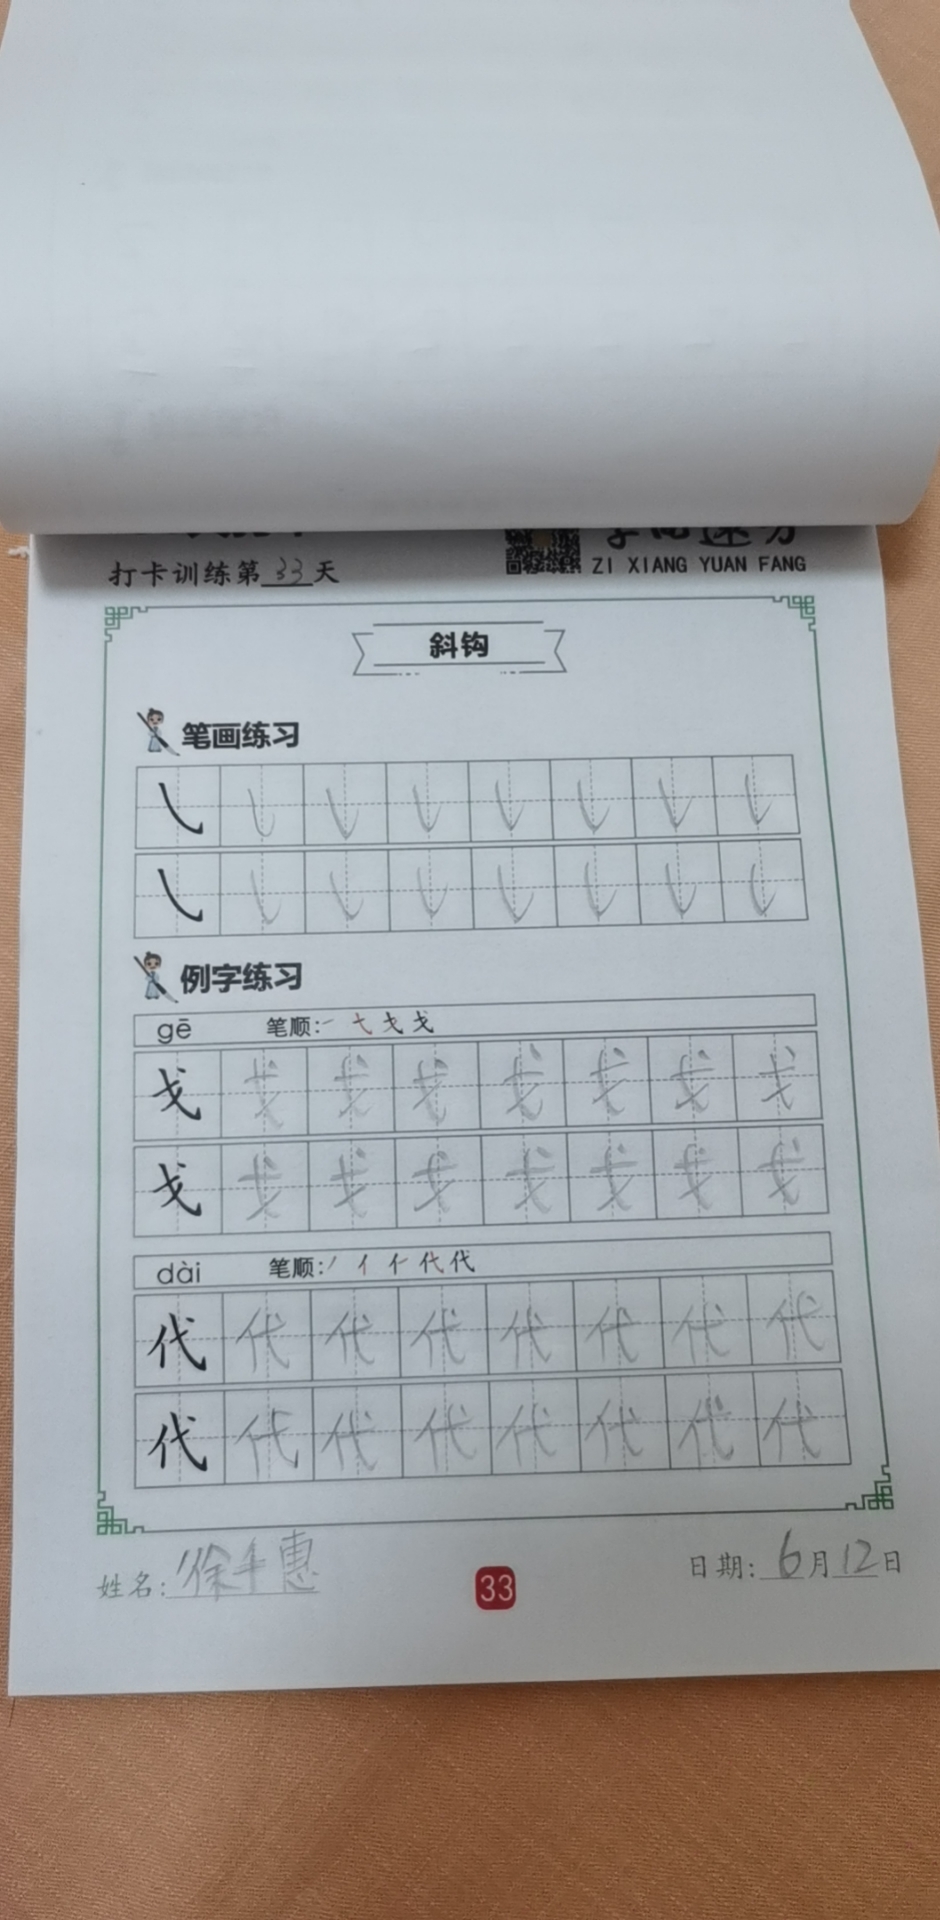 打卡训练第33天
ZI XIANG YUAN FANG
斜钩
笔画练习
例字练习
gē 笔顺:
戈 戈 戈 戈 戈 戈 戈 戈
戈 戈 戈 戈 戈 戈 戈 戈
dài 笔顺:
代 代 代 代 代 代 代 代
代 代 代 代 代 代 代 代
姓名: 徐 惠
33
日期: 6月12日